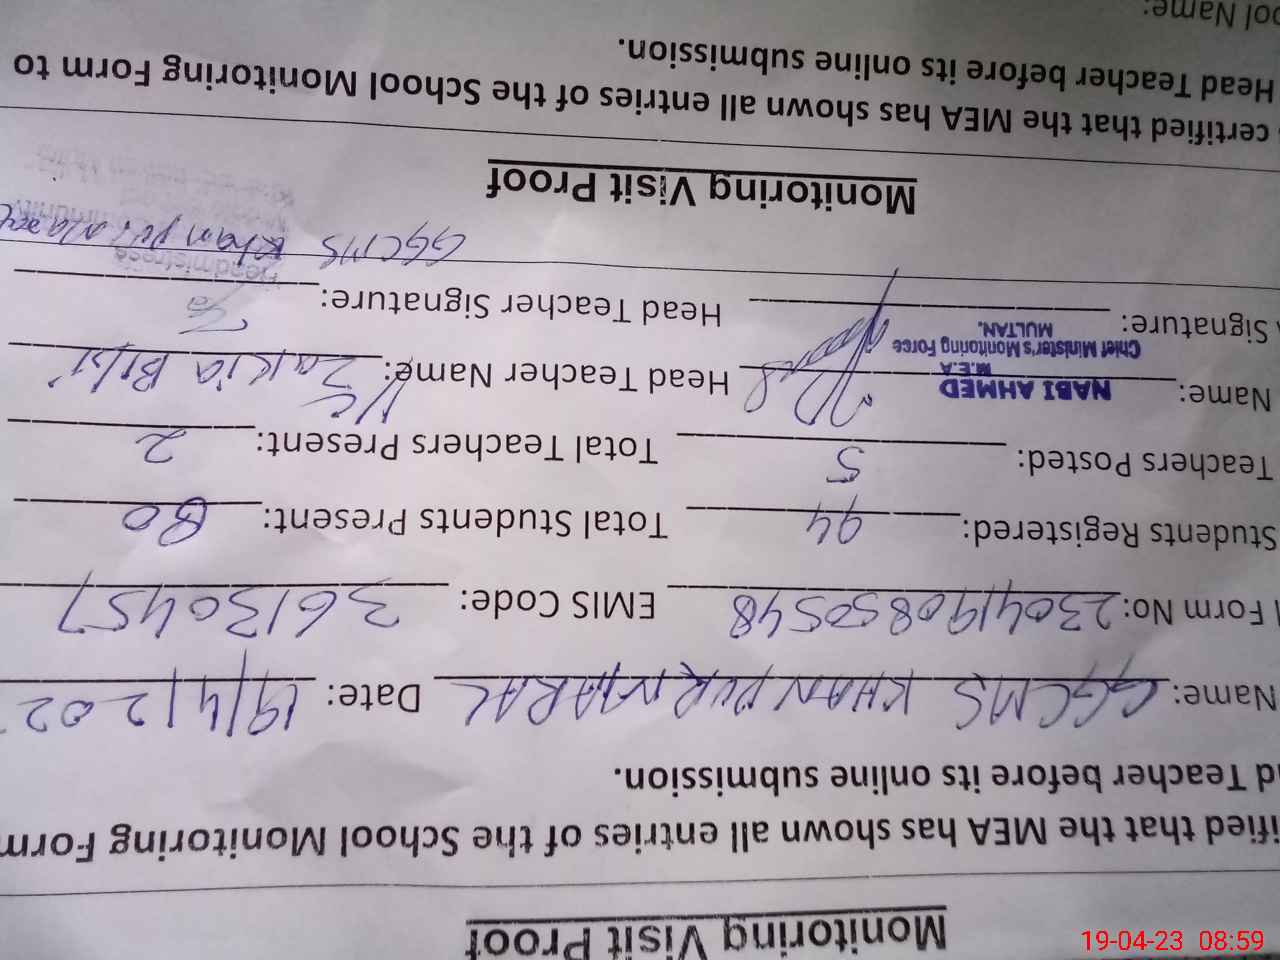 Monitoring Visit Proof
ified that the MEA has shown all entries of the School Monitoring Form
d Teacher before its online submission.
Name: GGCMS KHANPUR MARAL Date: 19/4/202
Form No: 230419085050548 EMIS Code: 36130457
Students Registered: 94 Total Students Present: 80
Teachers Posted: 5 Total Teachers Present: 2
Name: NABI AHMED Head Teacher Name: Zakia Bibi
M.E.A
Chief Minister's Monitoring Force
MULTAN.
Signature: Head Teacher Signature:
Headmistress
GGCMS Khanpur Maral
Monitoring Visit Proof
certified that the MEA has shown all entries of the School Monitoring Form to
Head Teacher before its online submission.
ool Name:
19-04-23 08:59